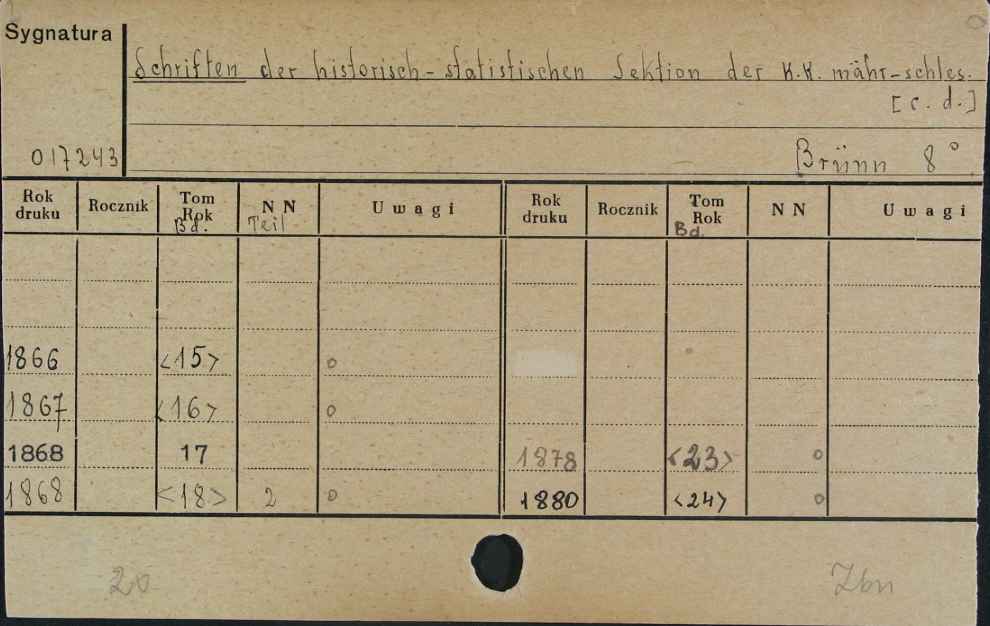 Sygnatura
Schriften der historisch-statistischen Sektion der K.K. mähr-schles.
[c. d.]
017243
Brünn 8°
Rok druku Rocznik Tom Rok Bd. NN Teil Uwagi Rok druku Rocznik Tom Rok Bd. NN Uwagi
1866 <15> o
1867 <16> o
1868 17 1878 <23> o
1868 <18> 2 o 1880 <24> o
20 Zbn